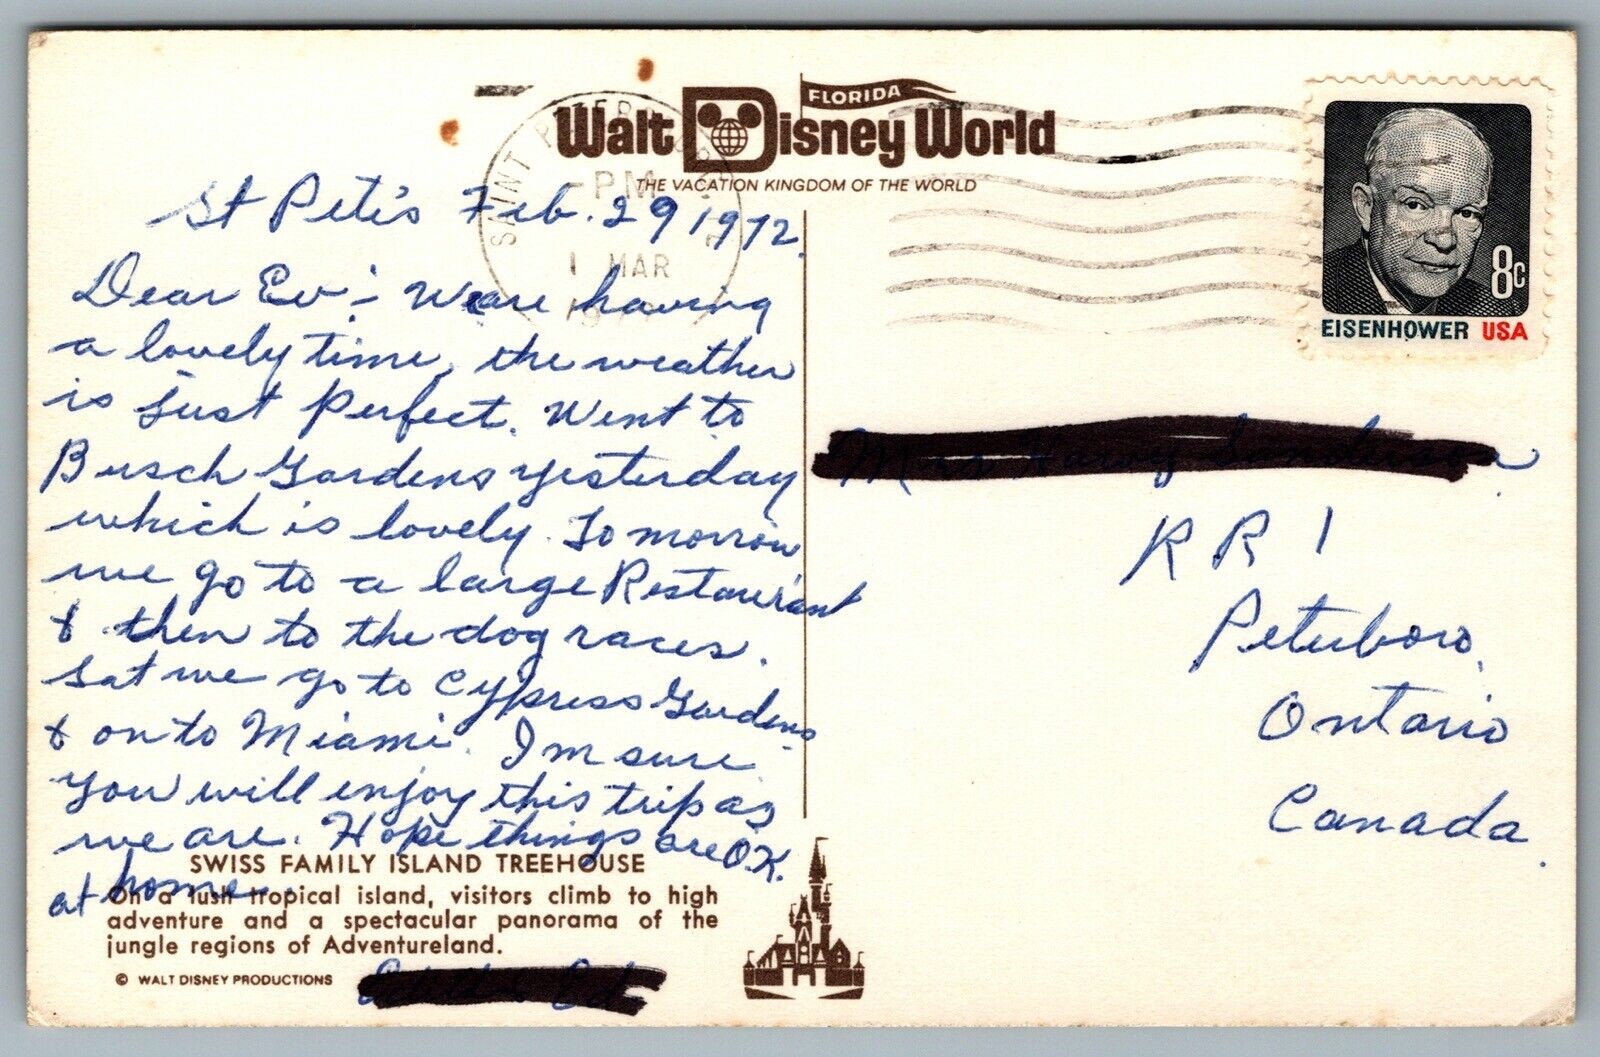 FLORIDA
Walt Disney World
THE VACATION KINGDOM OF THE WORLD
SAINT PETERSBURG
PM
1 MAR
8c
EISENHOWER USA
St Pete's Feb. 29 1972
Dear Ev :- We are having
a lovely time, the weather
is just perfect. Went to
Busch Gardens yesterday
which is lovely. To morrow
we go to a large Restaurant
& then to the dog races.
Sat we go to Cypress Gardens
& on to Miami. I'm sure
you will enjoy this trip as
we are. Hope things are O.K.
at home.
R R 1
Peterboro,
Ontario
Canada.
SWISS FAMILY ISLAND TREEHOUSE
On a lush tropical island, visitors climb to high
adventure and a spectacular panorama of the
jungle regions of Adventureland.
© WALT DISNEY PRODUCTIONS